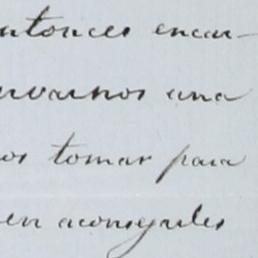 entonces encar-
varnos una
os tomar para
en aconsejarles